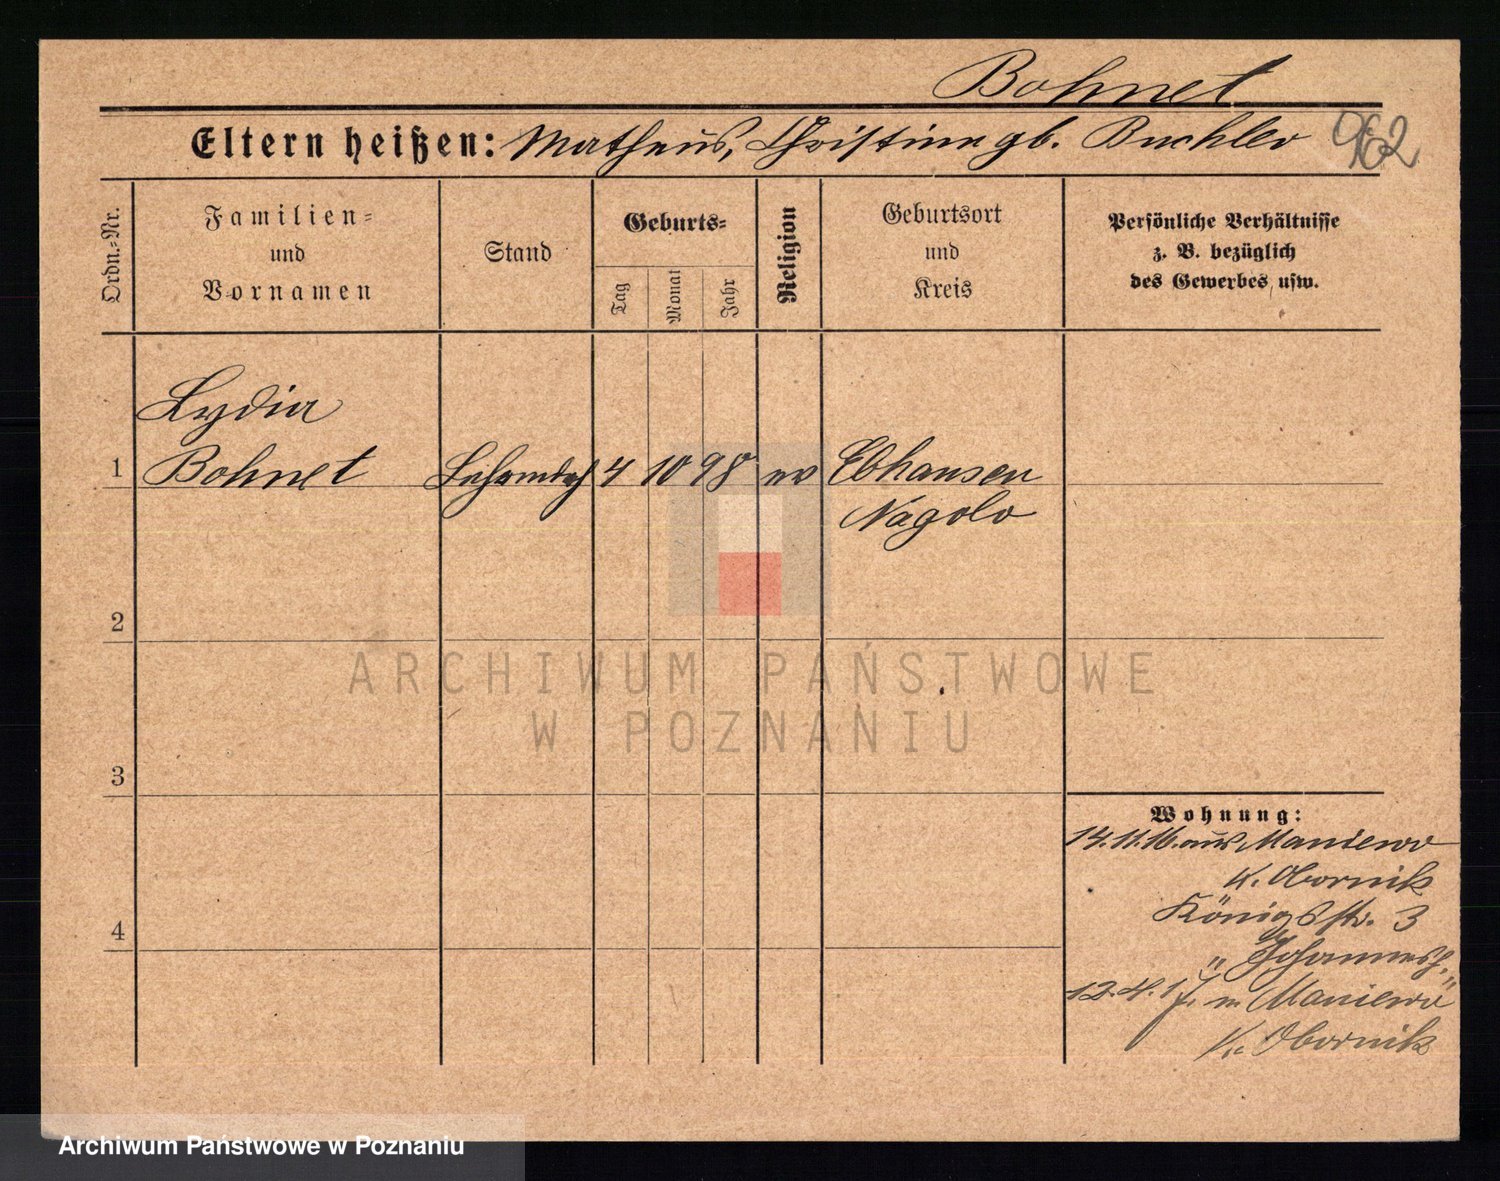 Bohnet
Eltern heißen: Matheus, Christine gb. Buchler 962
Ordn.=Nr.
Familien=
und
Vornamen
Stand
Geburts=
Tag
Monat
Jahr
Religion
Geburtsort
und
Kreis
Persönliche Verhältnisse
z. B. bezüglich
des Gewerbes usw.
Lydia
1 Bohnet 4 10 98 ev Ebhausen
Nagold
2
ARCHIWUM PAŃSTWOWE
W POZNANIU
3
Wohnung:
14.11.16. aus Maniewo
K. Obornik
4 Königsstr. 3
12.4.17. n. Maniewo
K. Obornik
Archiwum Państwowe w Poznaniu